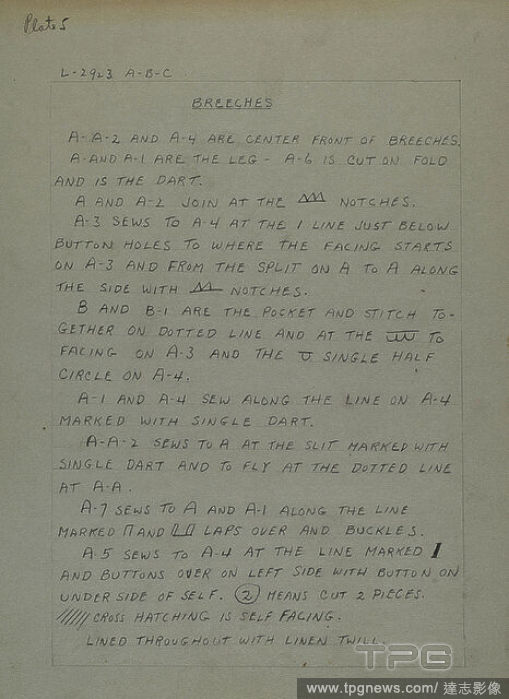 Plate 5
L-2923 A-B-C
BREECHES
A-A-2 AND A-4 ARE CENTER FRONT OF BREECHES.
A-AND A-1 ARE THE LEG - A-6 IS CUT ON FOLD
AND IS THE DART.
A AND A-2 JOIN AT THE NOTCHES.
A-3 SEWS TO A-4 AT THE 1 LINE JUST BELOW
BUTTON HOLES TO WHERE THE FACING STARTS
ON A-3 AND FROM THE SPLIT ON A TO A ALONG
THE SIDE WITH NOTCHES.
B AND B-1 ARE THE POCKET AND STITCH TO-
GETHER ON DOTTED LINE AND AT THE TO
FACING ON A-3 AND THE SINGLE HALF
CIRCLE ON A-4.
A-1 AND A-4 SEW ALONG THE LINE ON A-4
MARKED WITH SINGLE DART.
A-A-2 SEWS TO A AT THE SLIT MARKED WITH
SINGLE DART AND TO FLY AT THE DOTTED LINE
AT A-A.
A-7 SEWS TO A AND A-1 ALONG THE LINE
MARKED AND LAPS OVER AND BUCKLES.
A-5 SEWS TO A-4 AT THE LINE MARKED
AND BUTTONS OVER ON LEFT SIDE WITH BUTTON ON
UNDER SIDE OF SELF. 2 MEANS CUT 2 PIECES.
CROSS HATCHING IS SELF FACING.
LINED THROUGHOUT WITH LINEN TWILL.
TPG
www.tpgnews.com/ 達志影像